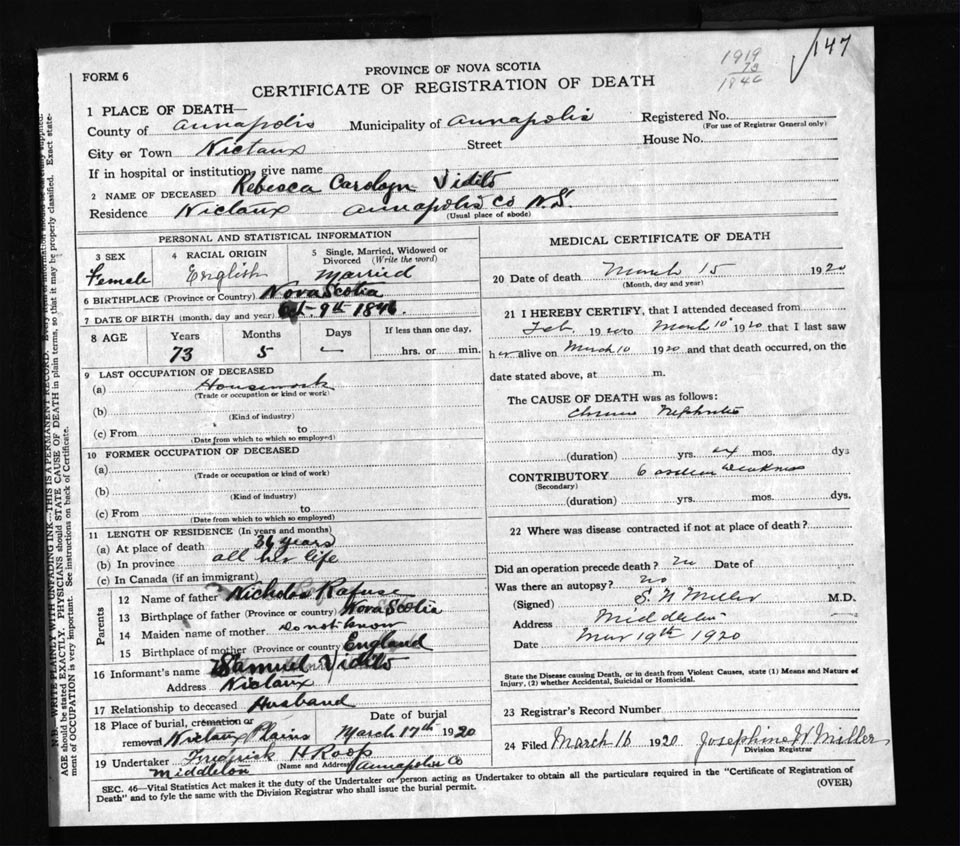 147
1919
73
1846
FORM 6
PROVINCE OF NOVA SCOTIA
CERTIFICATE OF REGISTRATION OF DEATH
1 PLACE OF DEATH—
County of Annapolis Municipality of Annapolis Registered No.
(For use of Registrar General only)
City or Town Nictaux Street House No.
If in hospital or institution, give name
2 NAME OF DECEASED Rebecca Carolyn Vidito
Residence Nictaux Annapolis Co N.S.
(Usual place of abode)
PERSONAL AND STATISTICAL INFORMATION
3 SEX 4 RACIAL ORIGIN 5 Single, Married, Widowed or Divorced (Write the word)
Female English Married
6 BIRTHPLACE (Province or Country) Nova Scotia
7 DATE OF BIRTH (month, day and year) 9th 1846.
8 AGE Years Months Days If less than one day,
73 5 — hrs. or min.
9 LAST OCCUPATION OF DECEASED
(a) Housework
(Trade or occupation or kind or work)
(b)
(Kind of industry)
(c) From to
(Date from which to which so employed)
10 FORMER OCCUPATION OF DECEASED
(a)
(Trade or occupation or kind of work)
(b)
(Kind of industry)
(c) From to
(Date from which to which so employed)
11 LENGTH OF RESIDENCE (In years and months)
(a) At place of death 36 years
(b) In province all her life
(c) In Canada (if an immigrant)
Parents
12 Name of father Nicholas Rafuse
13 Birthplace of father (Province or country) Nova Scotia
14 Maiden name of mother Do not know
15 Birthplace of mother (Province or country) England
16 Informant's name Samuel Vidito
Address Nictaux
17 Relationship to deceased Husband
18 Place of burial, cremation or removal Nictaux Plains Date of burial March 17th 1920
19 Undertaker Frederick H Roop
(Name and Address)
Middleton Annapolis Co
MEDICAL CERTIFICATE OF DEATH
20 Date of death March 15 1920
(Month, day and year)
21 I HEREBY CERTIFY, that I attended deceased from
Feb. 1920 to March 10 1920 that I last saw
her alive on March 10 1920 and that death occurred, on the
date stated above, at m.
The CAUSE OF DEATH was as follows:
Chronic Nephritis
(duration) yrs. mos. dys
CONTRIBUTORY Cardiac weakness
(Secondary)
(duration) yrs. mos. dys.
22 Where was disease contracted if not at place of death?
Did an operation precede death? no Date of
Was there an autopsy? no
(Signed) Miller M.D.
Address Middleton
Date Mar 19th 1920
State the Disease causing Death, or in death from Violent Causes, state (1) Means and Nature of
Injury, (2) whether Accidental, Suicidal or Homicidal.
23 Registrar's Record Number
24 Filed March 16 1920 Josephine W Miller
Division Registrar
SEC. 46—Vital Statistics Act makes it the duty of the Undertaker or person acting as Undertaker to obtain all the particulars required in the "Certificate of Registration of
Death" and to fyle the same with the Division Registrar who shall issue the burial permit.
(OVER)
N.B. WRITE PLAINLY WITH UNFADING INK—THIS IS A PERMANENT RECORD.
AGE should be stated EXACTLY. PHYSICIANS should STATE CAUSE OF DEATH in plain terms, so that it may be properly classified. Exact state-
ment of OCCUPATION is very important. See instructions on back of Certificate.